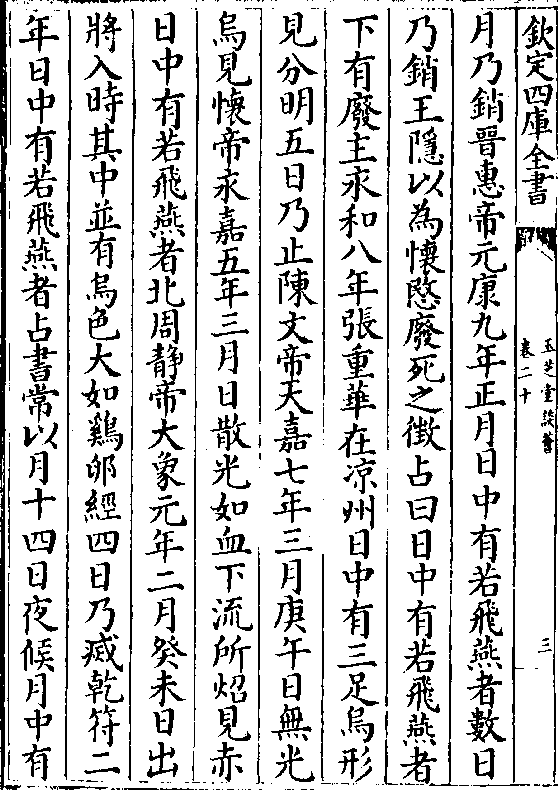 欽定四庫全書
玉芝堂談薈
卷二十
三
月乃銷晉惠帝元康九年正月日中有若飛燕者數日
乃銷王隱以為懷愍廢死之徵占曰日中有若飛燕者
下有廢主永和八年張重華在涼州日中有三足烏形
見分明五日乃止陳文帝天嘉七年三月庚午日無光
烏見懷帝永嘉五年三月日散光如血下流所炤見赤
日中有若飛燕者北周靜帝大象元年二月癸未日出
將入時其中並有烏色大如鷄卵經四日乃滅乾符二
年日中有若飛燕者占書常以月十四日夜候月中有